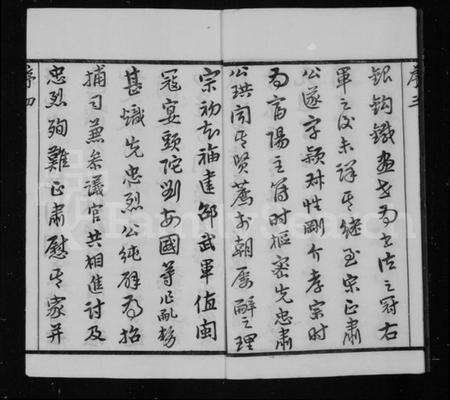 序三
銀鈎鐵畫世為書法之冠右
軍之後未詳其繼至宋正肅
公遂字穎叔性剛介孝宗時
為富陽主簿時樞密先忠肅
公珙聞其賢薦於朝屡辭之理
宗初知福建邵武軍值閩
冦宴頭陀劉安國等作亂勢
甚熾先忠烈公純辟為招
捕司兼參議官共相進討及
忠烈殉難正肅慰其家并
序四
FamilySearch